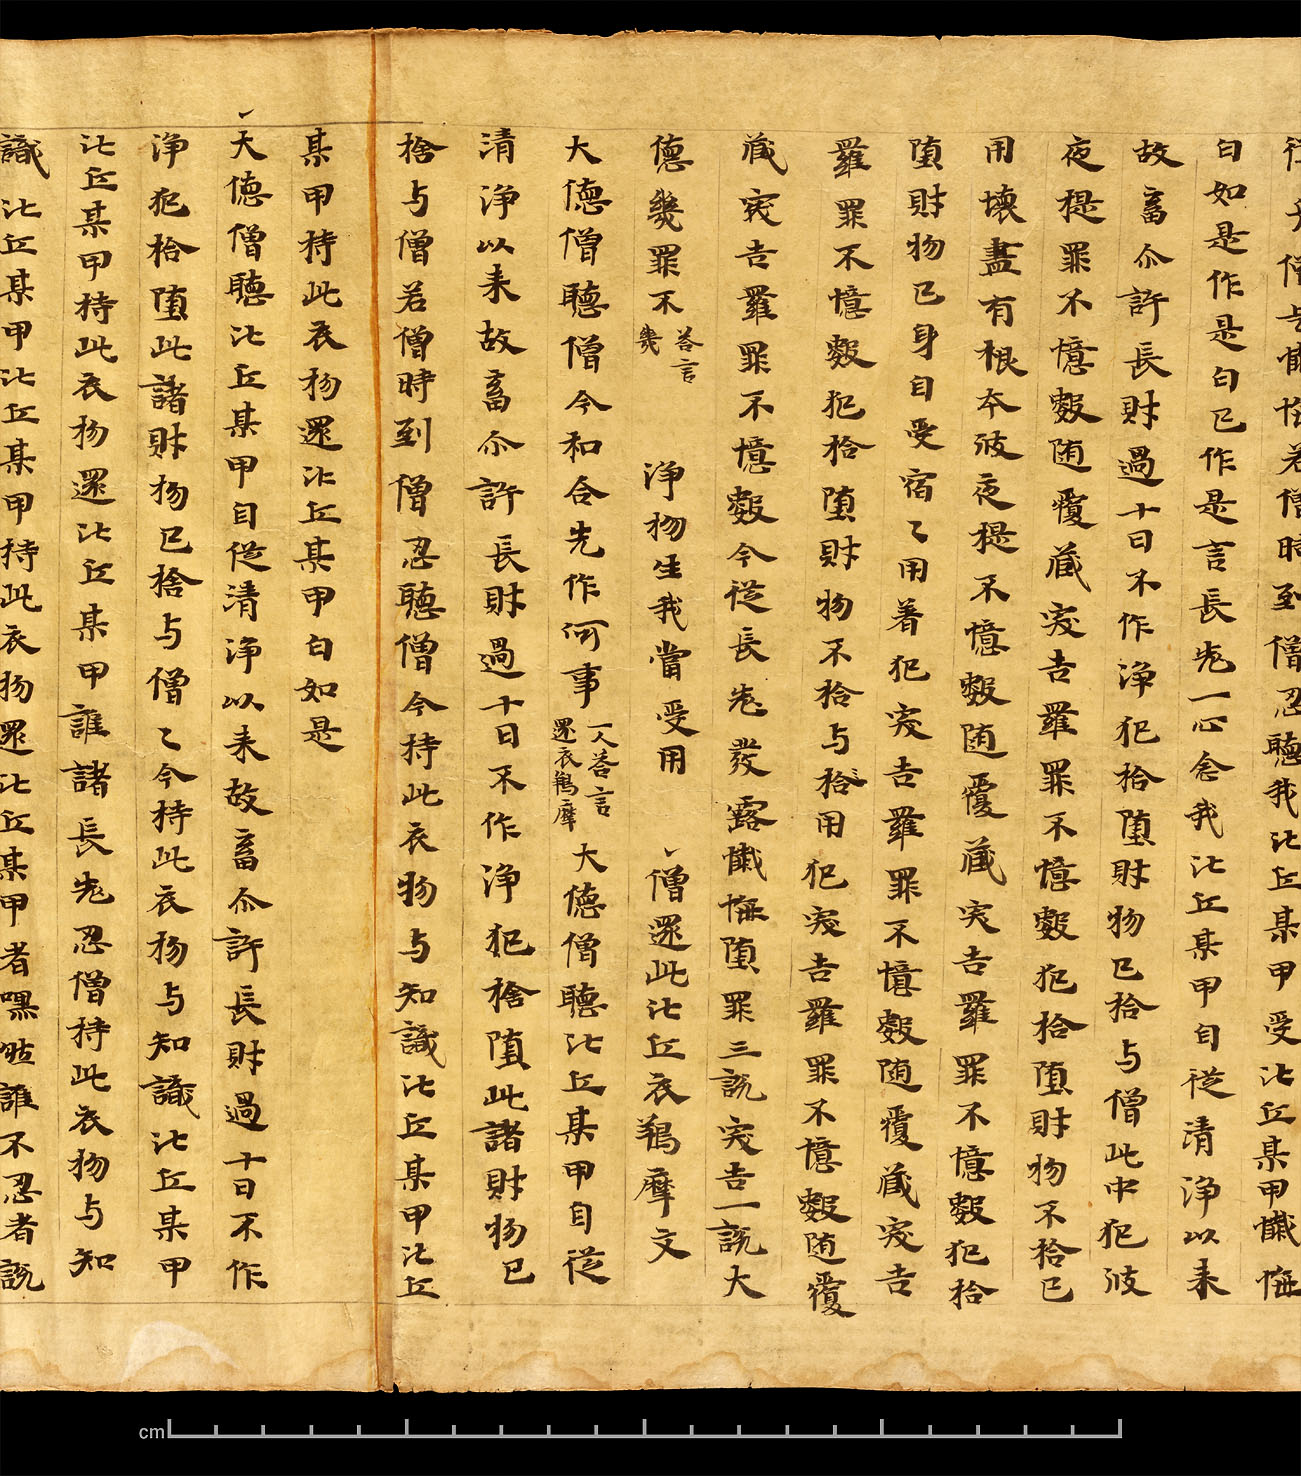 僧忍聽我比丘某甲受比丘某甲懺悔
白如是作是白已作是言長老一心念我比丘某甲自從清淨以來
故畜尒許長財過十日不作淨犯捨墮財物已捨与僧此中犯波
夜提罪不憶數随覆藏突吉羅罪不憶數犯捨墮財物不捨已
用壞盡有根本波夜提不憶數随覆藏突吉羅罪不憶數犯捨
墮財物已身自受宿〻用著犯突吉羅罪不憶數随覆藏突吉
羅罪不憶數犯捨墮財物不捨与捨用犯突吉羅罪不憶數随覆
藏突吉羅罪不憶數今從長老發露懺悔墮罪三說突吉一說大
德幾罪不答言幾 淨物生我當受用 僧還此比丘衣羯摩文
大德僧聽僧今和合先作何事一人答言還衣羯摩大德僧聽比丘某甲自從
清淨以來故畜尒許長財過十日不作淨犯捨墮此諸財物已
捨与僧若僧時到僧忍聽僧今持此衣物与知識比丘某甲比丘
某甲持此衣物還比丘某甲白如是
大德僧聽比丘某甲自從清淨以來故畜尒許長財過十日不作
淨犯捨墮此諸財物已捨与僧〻今持此衣物与知識比丘某甲
比丘某甲持此衣物還比丘某甲誰諸長老忍僧持此衣物与知
識比丘某甲比丘某甲持此衣物還比丘某甲者嘿然誰不忍者說